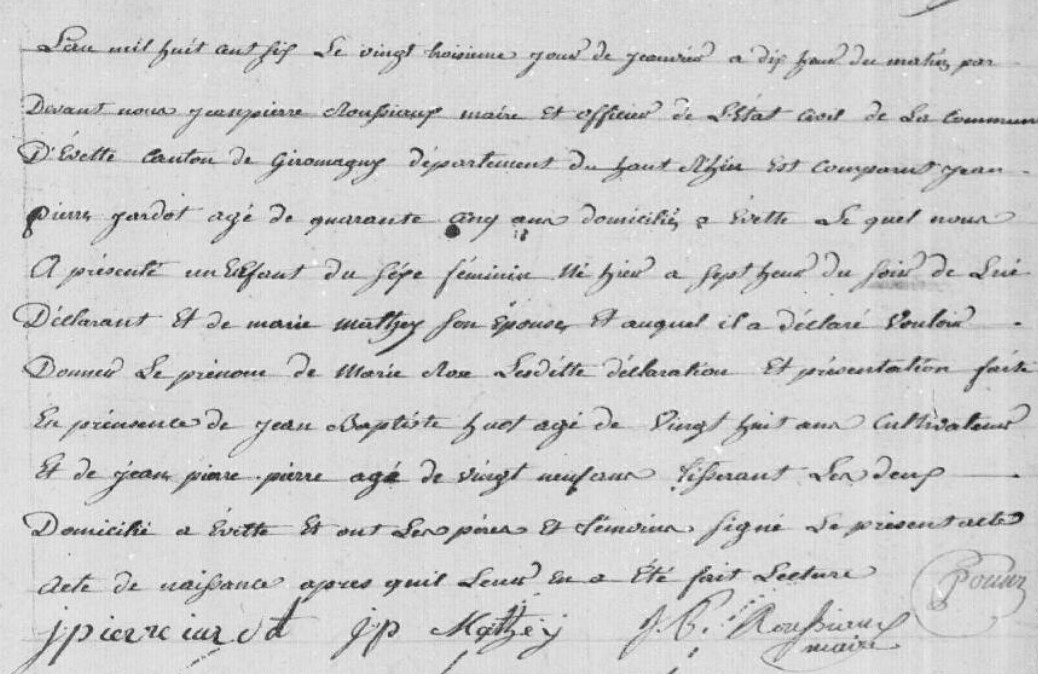 L'an mil huit cent six Le vingt troisieme jour de Jeanvier a dix heur du matin par
Devant nous jeanpierre Roussiaux maire et officier de L'Etat Civil de La Commun
D'Evette Canton de Giromagny département du haut Rhin Est Comparut jean
pierre jardot agé de quarante cinq ans domicilié a Evette Le quel nous
A présenté un Enfant du sexe féminin Né hier a sept heur du soir de Lui
Déclarant Et de marie mathey son Epouse Et auquel il a déclaré Vouloir
Donner Le prénom de Marie Rose Lesditte déclaration Et présentation faite
En présence de jean Baptiste huot agé de Vingt huit ans Cultivateur
Et de jean pierre pierre agé de vingt neuf ans tisserant Les deux
Domicilié a Evette Et ont Les péres Et témoins signé Le présent acte
Acte de naissance apres quil Leur En a Eté fait Lecture
jpierre iardot jp Mathey J.P. Roussiaux
maire